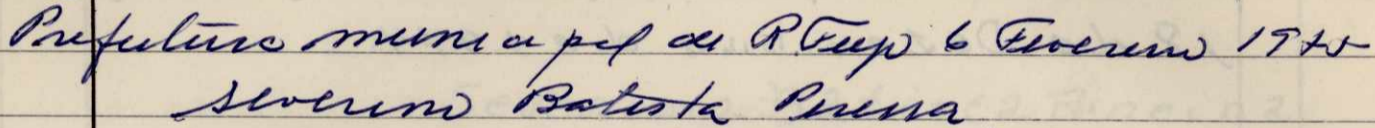 Prefeitura municipal de R Feep 6 Fevereiro 197
Severino Batista Pereira